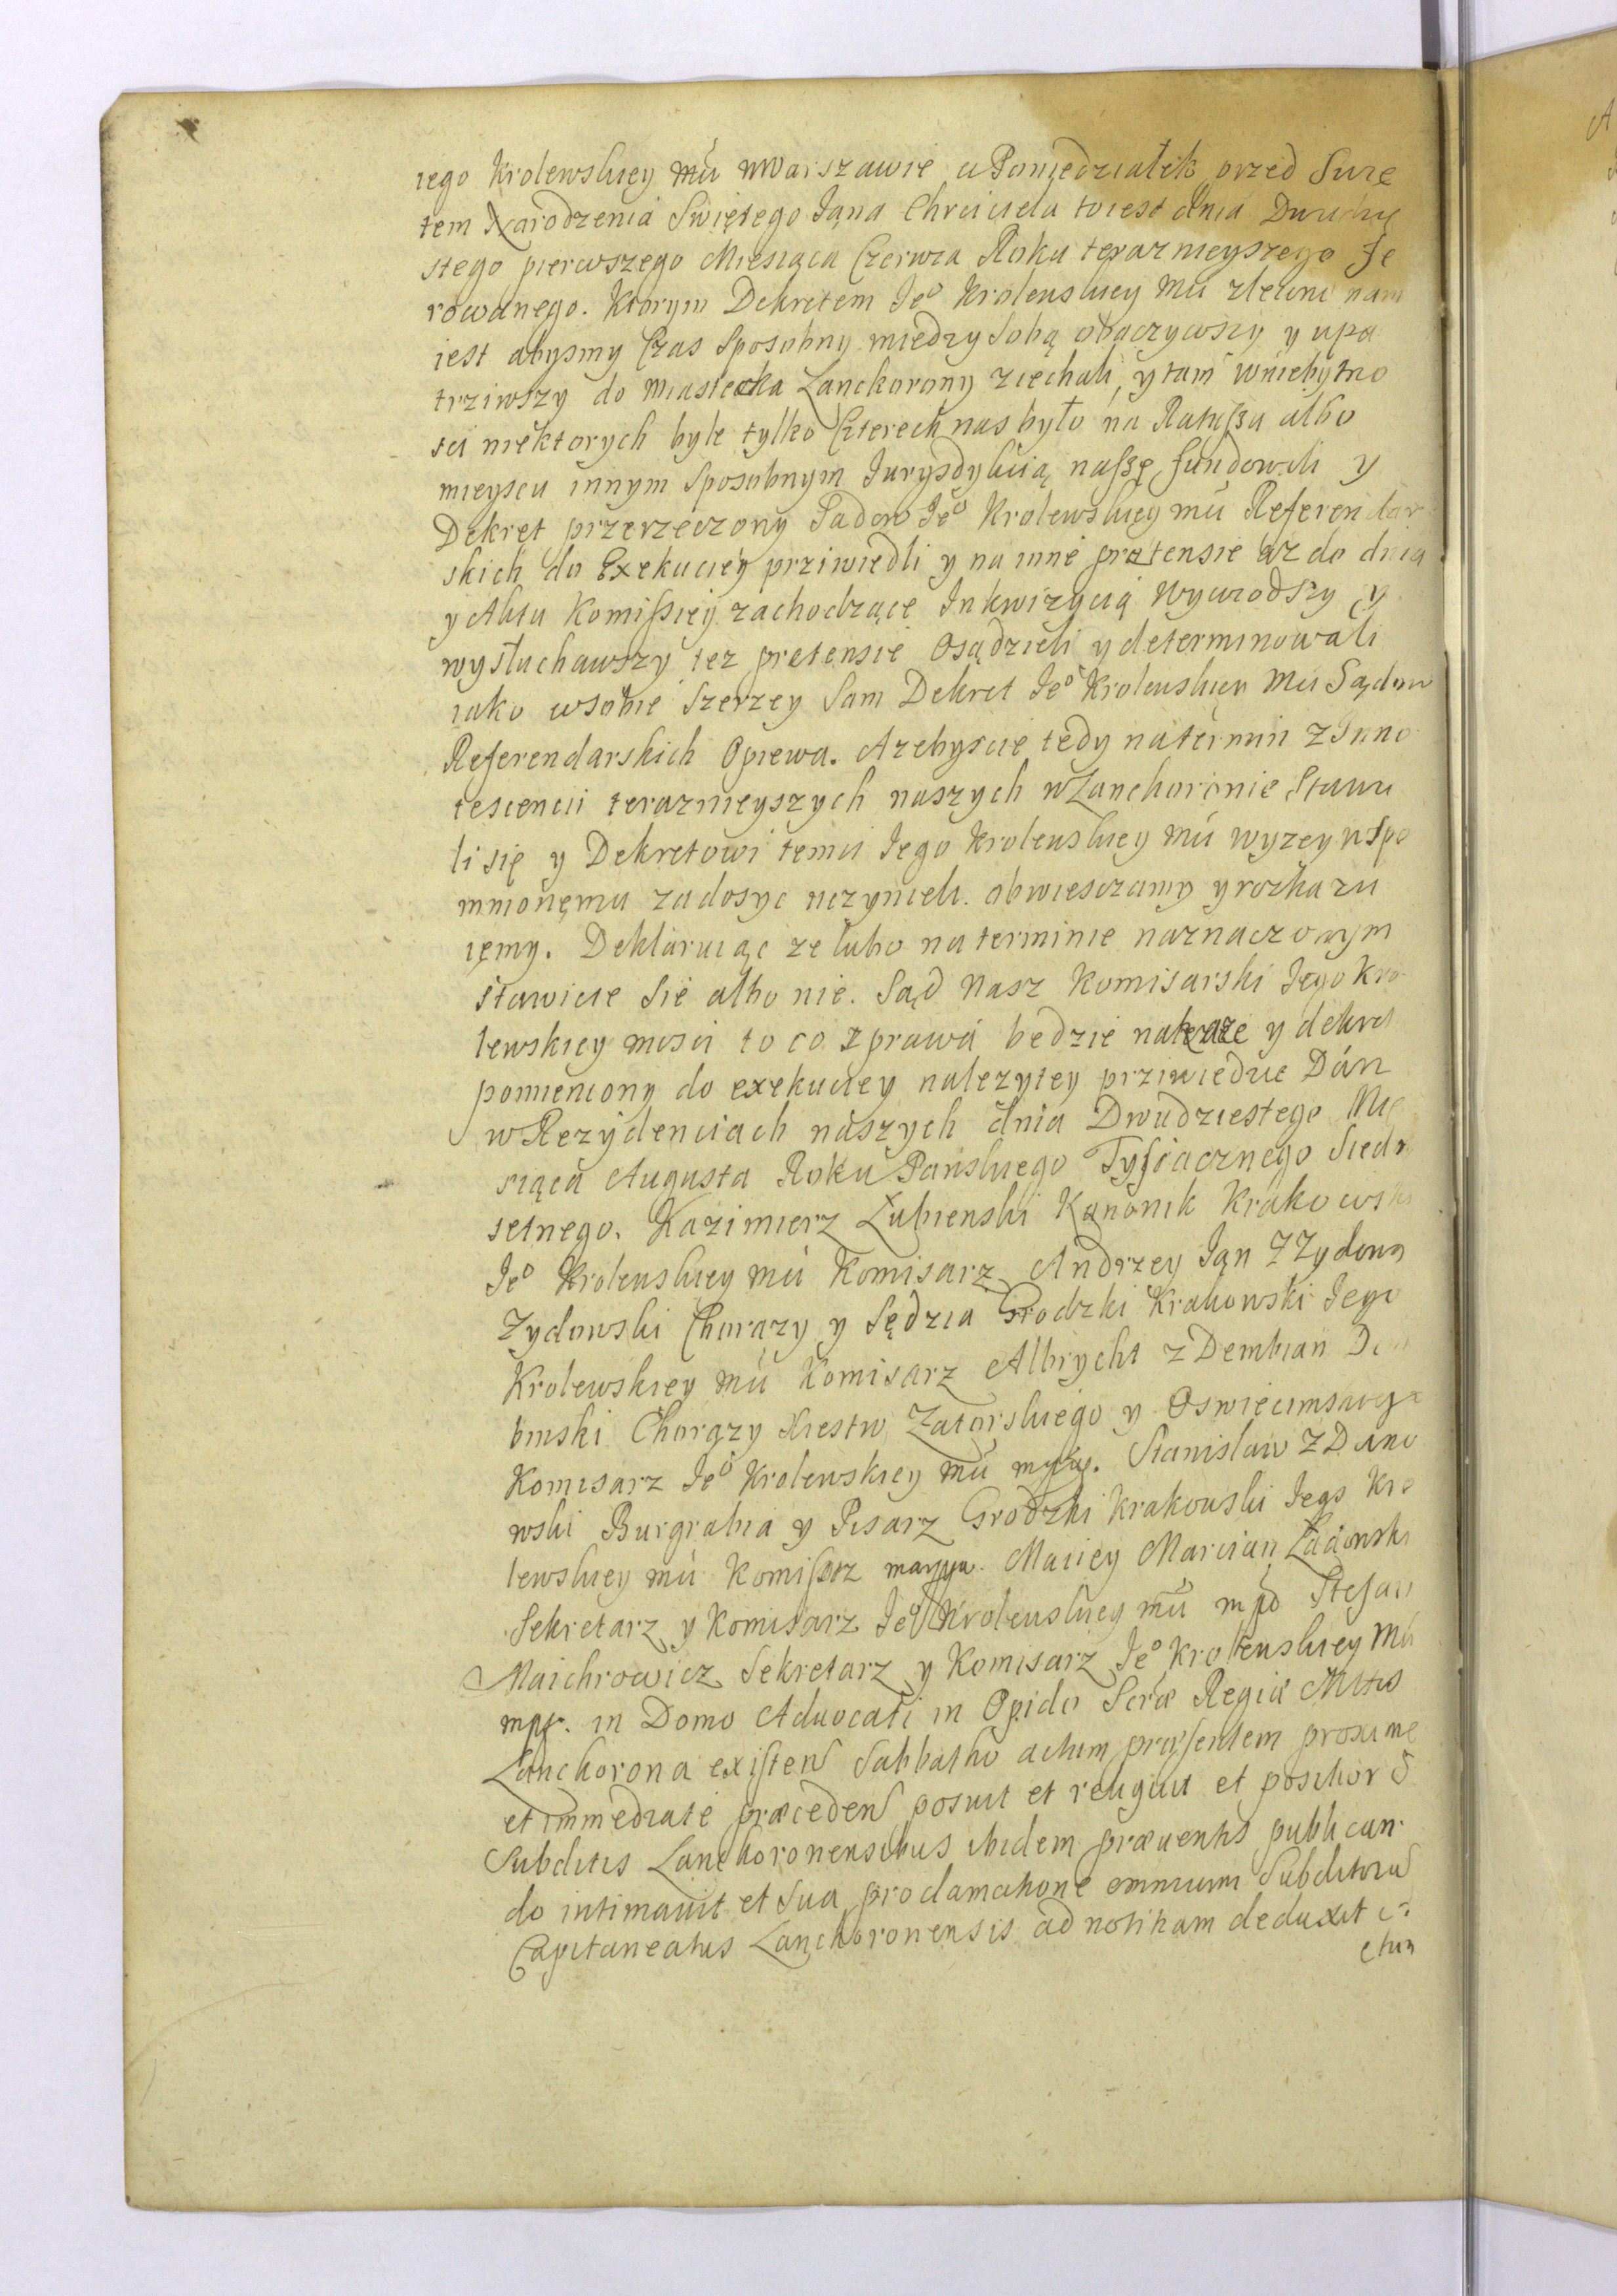 iego Krolewskiey Mci wWarszawie w Poniedziałek przed Swię
tem Narodzenia Swiętego Jąna Chrciciela toiest dnia Dwudzie
stego pierwszego Miesiąca Czerwca Roku teraznieyszego Fe
rowanego. Ktorym Dekretem Jeº Krolewskiey Mci zlecono nam
iest abysmy Czas Sposobny między Sobą obaczywszy y upa
trziwszy do Miasteczka Lanckorony ziechali, y tam wniebytno
sci niektorych byle tylko Czterech nas było na Ratuszu albo
mieyscu innym Sposobnym Jurysdykcią naszę fundowali y
Dekret przerzeczony Sądow Jeº Krolewskiey mci Referendar
skich do Exekuciey prziwiedli y na inne pretensie az do dnia
y Aktu Komissiey zachodzące Inkwizycią Wywodszy y
wysłuchawszy tez pretensie Osądzieli y determinowali
iako wsobie Szerzey Sam Dekret Jeº Krolewskiey Mci Sądow
Referendarskich Opiewa. Azebyscie tedy natermin z Inno
tescencii teraznieyszych naszych wLanckoronie Stawi
li się y Dekretowi temu Jego Krolewskiey mci wyzey wspo
mnionęmu zadosyc uczynieli. obwiesczamy y rozkazu
ięmy. Deklaruiąc ze lubo na terminie naznaczonym
stawicie Sie albo nie. Sąd Nasz Komisarski Jego Kro
lewskiey mosci to co z prawa będzie nakaze y dekret
pomieniony do exekuciey nalezytey prziwiedzie Dan
w Rezydenciach naszych dnia Dwudziestego Mie
siąca Augusta Roku Panskiego Tysiącznego Siedm
setnego. Kazimierz Łubienski Kanonik Krakowski
Jeº Krolewskiey mci Komisarz Andrzey Jan Z Zydowa
Zydowski Chorązy y Sędzia Grodzki Krakowski Jego
Krolewskiey mci Komisarz Albrycht z Dembian Dem
binski Chorązy Xiestw Zatorskiego y Oswięcimskiego
Komisarz Jeº Krolewskiey mci mpp. Stanislaw Z Dano
wski Burgrabia y Pisarz Grodzki Krakowski Jego Kro
lewskiey mci Komisarz manpp. Maciey Marcian Ładonski
Sekretarz y Komisarz Jeº Krolewskiey mci mpp Stefan
Maichrowicz Sekretarz y Komisarz Jeº Krolewskiey Mci
mpp. in Domo Advocati in Opido Scræ Regiæ Mttis
Lanckorona existen Sabbatho actum præsentem proxime
et immediate præceden posuit et reliquit et positior
Subditis Lanckoronensibus ibidem præventis publican
do intimavit et Sua proclamatione omnium Subditoru
Capitaneatus Lanckoronensis ad notitiam deduxit